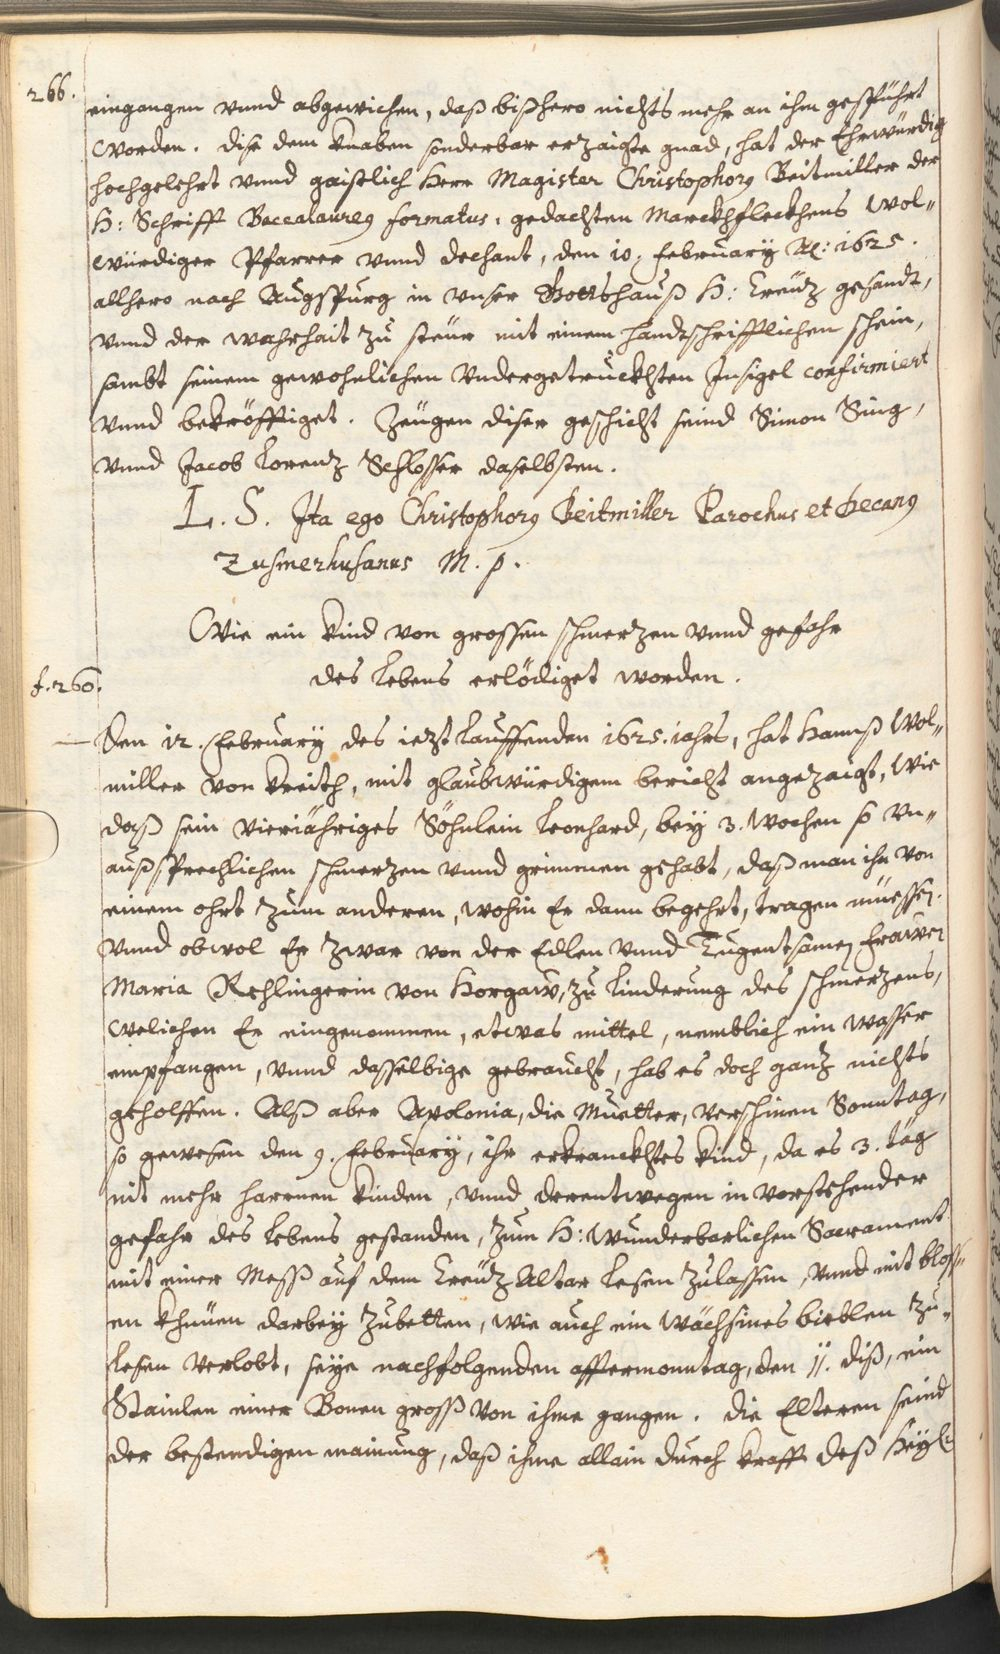 266.
eingangen vnnd abgewichen, daß bißhero nichts mehr an ihm gespührt
worden. dise dem knaben sonderbar erzaigte gnad, hat der Ehrwürdig
hochgelehrt vnnd gaistlich Herr Magister Christophorꝰ Beitmiller der
H: Schrifft Baccalaureꝰ formatus, gedachten Marckhfleckhens wol„
würdiger Pfarrer vnnd dechant, den 10. february Aō: 1625.
allhero nach Augspurg in vnser Gottshauß H: Creütz gesandt,
vnnd der wahrhait zu steür mit einem handtschrifftlichen schein,
sambt seinem gewohnlichen vndergetruckhten Insigel confirmiert
vnnd bekröfftiget. Zeugen diser geschicht seind Simon Sing,
vnnd Jacob Lorentz Schlosser daselbsten.
L. S. Ita ego Christophorꝰ Beitmiller Parochus et Decanꝰ
Zusmerhusanus M. p.
Wie ein kind von grossen schmertzen vnnd gefahr
des lebens erlödiget worden.
f. 260.
Den 12. february des ietzt lauffenden 1625. iahrs, hat Hannß Wol„
miller von Kreith, mit glaubwürdigem bericht angezaigt, wie
daß sein vieriähriges Söhnlein Leonhard, bey 3. wochen so vn„
außsprechlichen schmertzen vnnd grimmen gehabt, daß man ihn von
einem ohrt zum anderen, wohin Er dann begehrt, tragen müessen.
vnnd obwol Er zwar von der Edlen vnnd Tugentsamen frawen
Maria Rehlingerin von Horgaw, zu linderung des schmertzens,
welichen Er eingenommen, etwas mittel, nemblich ein wasser
empfangen, vnnd dasselbige gebraucht, hab es doch gantz nichts
geholffen. Alß aber Apolonia, die Muetter, verschinen Sonntag,
so gewesen den 9. february, ihr erkranckhtes kind, da es 3. täg
nit mehr harnen kinden, vnnd derentwegen in vorstehender
gefahr des lebens gestanden, zum H: wunderbarlichen Sacrament
mit einer Meß auf dem Creütz Altar lesen zulassen, vnnd mit bloss„
en khnüen darbey zubetten, wie auch ein wächsines bieblen zu„
lesen verlobt, seye nachfolgenden afftermonntag, den 11. diß, ein
Stainlen einer Bonen groß von ihme gangen. die Elteren seind
der bestendigen mainung, daß ihme allain durch krafft deß Heyl: